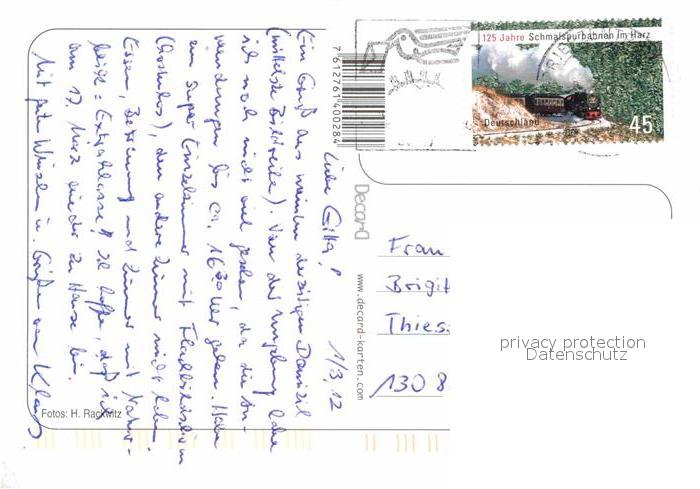 1/3,12
Liebe Gitta,
Ein Gruß aus meinem derzeitigen Domizil
(mittelste Bildreihe). Von der Umgebung habe
ich noch nicht viel gesehen, da die An-
wendungen bis ca. 16³⁰ Uhr gehen. Habe
ein super Einzelzimmer mit Flachbildschirm
(kostenlos), den andere Zimmer nicht haben.
Essen, Betreuung und Zimmer mit Nahe-
: Extraklasse! Ich hoffe, daß ich
am 17. März wieder zu Hause bin.
Mit guten Wünschen u. Grüßen von Klaus.
Fotos: H. Rackwitz
7612761400284
DecarD
www.decard-karten.com
125 Jahre Schmalspurbahnen im Harz
Deutschland
45
Frau
Brigit
Thies
130 8
privacy protection
Datenschutz